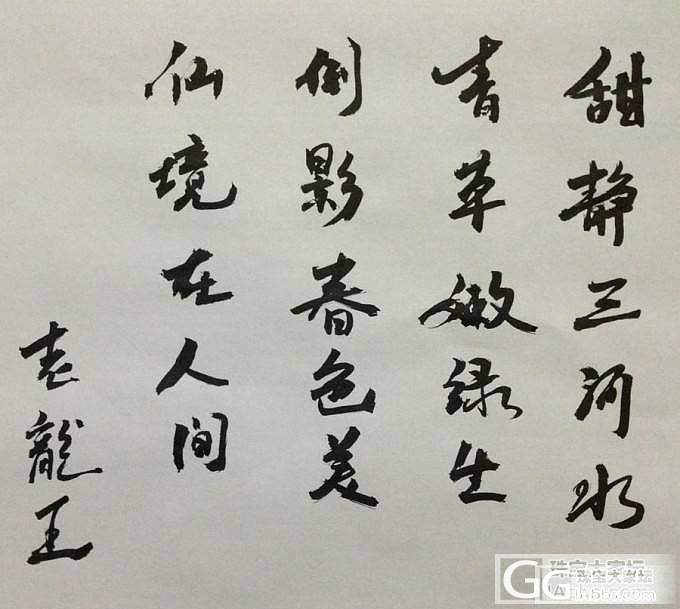 甜静三河水
青草嫩绿生
倒影春色美
仙境在人间
袁龍王
GG 珠宝大家坛